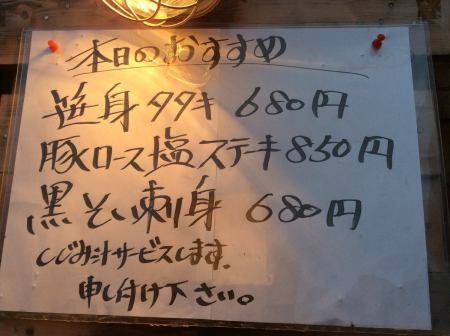 本日のおすすめ
笹身タタキ 680円
豚ロース塩ステキ 850円
黒そい刺身 680円
しじみ汁サービスします.
申し付け下さい。